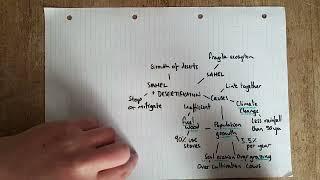 Fragile ecosystem
Growth of deserts
SAHEL
SAHEL
+ DESERTIFICATION
Link together
CAUSES
Stop
or mitigate
Inefficient
Climate
Change
Fuel
wood
Population
growth
Less rainfall
than 50 ya
90% use
stoves
3.5%
per year
Soil erosion
Over grazing
Over cultivation
cows